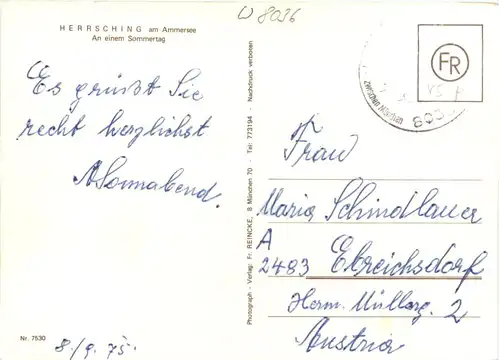 W 8036
HERRSCHING am Ammersee
An einem Sommertag
Es grüßt Sie
recht herzlichst
A Sonnabend.
Nr. 7530
8./9. 75.
Photograph - Verlag: Fr. REINCKE, 8 München 70 - Tel: 773194 - Nachdruck verboten
FR
803
Frau
Maria Schindlauer
A
2483 Ebreichsdorf
Herm. Müllerg. 2
Austria